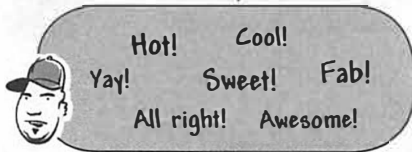 Hot! Cool!
Yay! Sweet! Fab!
All right! Awesome!